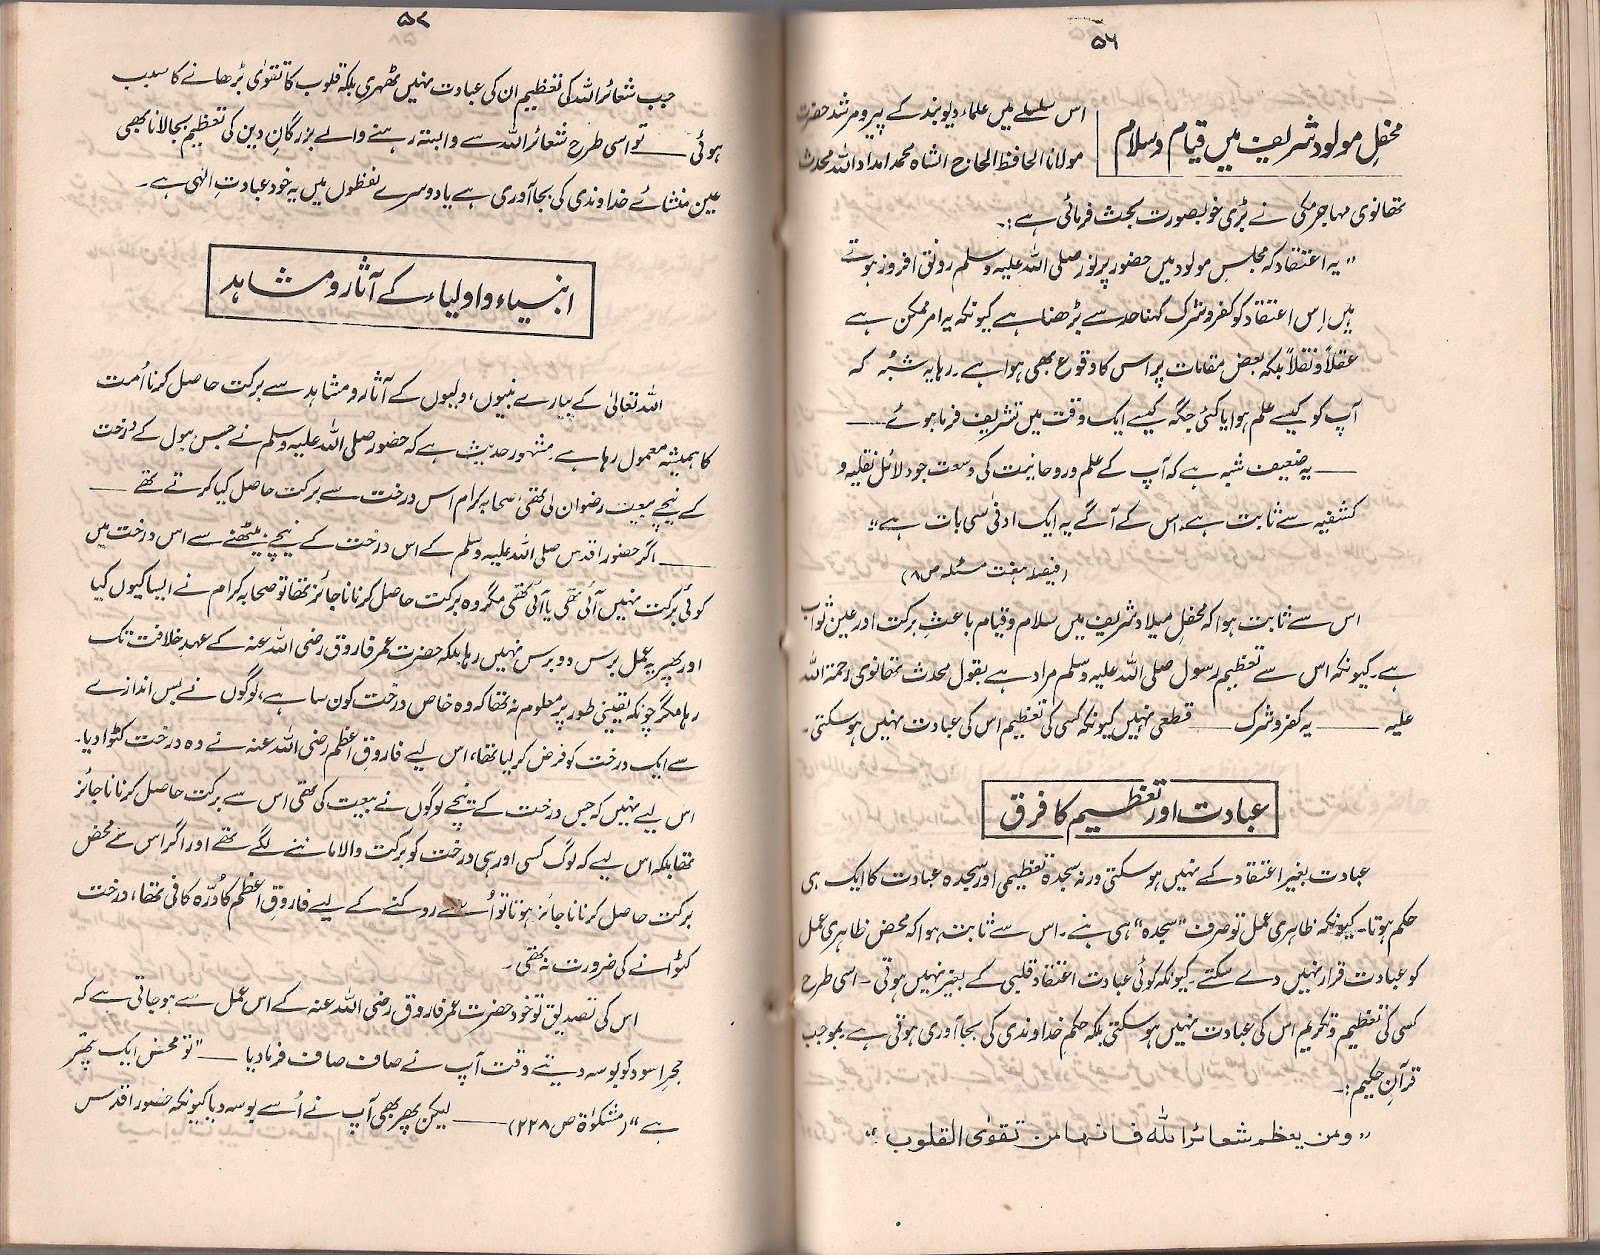 ۵۶
محفلِ مولود شریف میں قیام و سلام
اس سلسلے میں علماء دیوبند کے پیر و مرشد حضرت
مولانا الحافظ الحاج الشاہ محمد امداد اللہ محدث
تھانوی مہاجر مکی نے بڑی خوبصورت بحث فرمائی ہے :۔
”یہ اعتقاد کہ مجلسِ مولود میں حضور پرنور صلی اللہ علیہ وسلم رونق افروز ہوتے
ہیں اِس اعتقاد کو کفر و شرک کہنا حد سے بڑھنا ہے کیونکہ یہ امر ممکن ہے
عقلاً و نقلاً بلکہ بعض مقامات پر اس کا وقوع بھی ہوا ہے۔ رہا یہ شبُہ کہ
آپ کو کیسے علم ہوا یا کئی جگہ کیسے ایک وقت میں تشریف فرما ہوئے ——
—— یہ ضعیف شبہ ہے کہ آپ کے علم و روحانیت کی وسعت جو دلائل نقلیہ و
کشفیہ سے ثابت ہے اس کے آگے یہ ایک ادنیٰ سی بات ہے“
(فیصلہ ہفت مسئلہ ص ۸)
اس سے ثابت ہوا کہ محفلِ میلاد شریف میں سلام و قیام باعثِ برکت اور عین ثواب
ہے۔ کیونکہ اس سے تعظیمِ رسول صلی اللہ علیہ وسلم مراد ہے بقول محدث تھانوی رحمۃ اللہ
علیہ —— یہ کفر و شرک —— قطعی نہیں کیونکہ کسی کی تعظیم اس کی عبادت نہیں ہو سکتی۔
عبادت اور تعظیم کا فرق
عبادت بغیر اعتقاد کے نہیں ہو سکتی ورنہ سجدۂ تعظیمی اور سجدہ عبادت کا ایک ہی
حکم ہوتا۔ کیونکہ ظاہری عمل تو صرف ”سجدہ“ ہی بنے۔ اس سے ثابت ہوا کہ محض ظاہری عمل
کو عبادت قرار نہیں دے سکتے۔ کیونکہ کوئی عبادت اعتقادِ قلبی کے بغیر نہیں ہوتی۔ اسی طرح
کسی کی تعظیم و تکریم اس کی عبادت نہیں ہو سکتی بلکہ حکمِ خداوندی کی بجا آوری ہوتی ہے۔ بموجب
قرآنِ حکیم :۔
”ومن یعظم شعائر اللہ فانها من تقوی القلوب“
۵۷
جب شعائر اللہ کی تعظیم ان کی عبادت نہیں ٹھہری بلکہ قلوب کا تقویٰ بڑھانے کا سبب
ہوئی —— تو اسی طرح شعائر اللہ سے وابستہ رہنے والے بزرگانِ دین کی تعظیم بجا لانا بھی
عین منشائے خداوندی کی بجا آوری ہے یا دوسرے لفظوں میں یہ خود عبادتِ الٰہی ہے۔
انبیاء و اولیاء کے آثار و مشاہد
اللہ تعالیٰ کے پیارے نبیوں، ولیوں کے آثار و مشاہد سے برکت حاصل کرنا اُمت
کا ہمیشہ معمول رہا ہے۔ مشہور حدیث ہے کہ حضور صلی اللہ علیہ وسلم نے جس ببول کے درخت
کے نیچے بیعتِ رضوان لی تھی صحابہ کرام اس درخت سے برکت حاصل کیا کرتے تھے ——
—— اگر حضور اقدس صلی اللہ علیہ وسلم کے اس درخت کے نیچے بیٹھنے سے اس درخت میں
کوئی برکت نہیں آئی تھی یا آئی تھی مگر وہ برکت حاصل کرنا ناجائز تھا تو صحابہ کرام نے ایسا کیوں کیا
اور پھر یہ عمل برس دو برس نہیں رہا بلکہ حضرت عمر فاروق رضی اللہ عنہ کے عہدِ خلافت تک
رہا مگر چونکہ یقینی طور پر معلوم نہ تھا کہ وہ خاص درخت کون سا ہے، لوگوں نے بس اندازے
سے ایک درخت کو فرض کر لیا تھا، اس لیے فاروقِ اعظم رضی اللہ عنہ نے وہ درخت کٹوا دیا۔
اس لیے نہیں کہ جس درخت کے نیچے لوگوں نے بیعت کی تھی اس سے برکت حاصل کرنا ناجائز
تھا بلکہ اس لیے کہ لوگ کسی اور ہی درخت کو برکت والا ماننے لگے تھے اور اگر اس سے محض
برکت حاصل کرنا ناجائز ہوتا تو اُسے روکنے کے لیے فاروقِ اعظم کا دُرّہ کافی تھا، درخت
کٹوانے کی ضرورت نہ تھی۔
اس کی تصدیق تو خود حضرت عمر فاروق رضی اللہ عنہ کے اس عمل سے ہو جاتی ہے کہ
حجرِ اسود کو بوسہ دیتے وقت آپ نے صاف صاف فرما دیا —— ”تو محض ایک پتھر
ہے“ (مشکوٰۃ ص ۲۲۸) —— لیکن پھر بھی آپ نے اُسے بوسہ دیا کیونکہ حضور اقدس